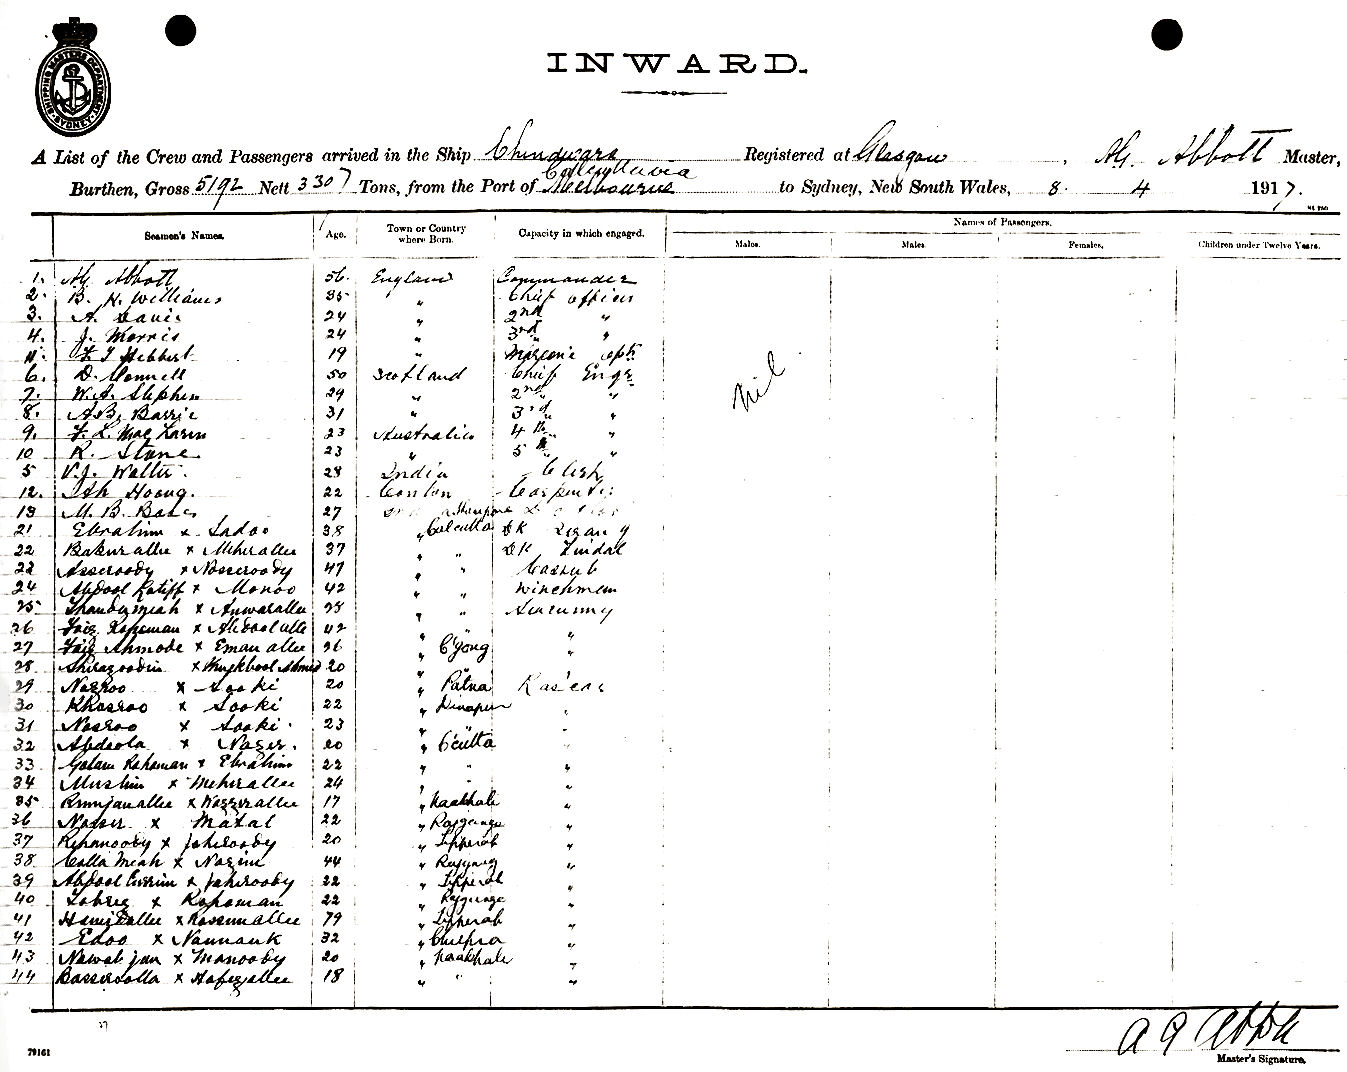 INWARD.
SHIPPING MASTERS DEPARTMENT SYDNEY
A List of the Crew and Passengers arrived in the Ship Chindwara Registered at Glasgow, AG. Abbott Master,
Burthen, Gross 5192 Nett 3307 Tons, from the Port of Melbourne to Sydney, New South Wales, 8. 4 1917.
Seamen's Names. Age. Town or Country where Born. Capacity in which engaged. Names of Passengers.
Males. Males. Females. Children under Twelve Years.
1. AG. Abbott 56 England Commander
2. B. H. Williams 35 " Chief officer
3. A. Davis 24 " 2nd "
4. J. Morris 24 " 3rd "
11. F. J Hebbert 19 " Marconi opt.
6. D. Connell 50 Scotland Chief Engr.
7. W. A. Stephen 29 " 2nd "
8. A. B. Barrie 31 " 3rd "
9. F. L. Mac Laren 23 Australia 4th "
10 R. Stone 23 " 5th "
5 V. J. Walter. 28 India Clerk
12. Ah Hoong. 22 Canton Carpenter
13 M. B. Bose 27
21 Ebrahim x Sadoo 38 " Calcutta DK Serang
22 Bakurallee x Meherallee 37 " " DK Tindal
23 Asseroody x Nosseroody 47 " " Cassub
24 Abdool Latiff x Monoo 42 " " Winchmen
25 Thandu miah x Anwarallee 28 " " Seacunny
26 Faiz Rohoman x Abdoolalle 42 " " "
27 Faiz Ahmode x Emanallee 26 " C'gong "
28 Shirazoodin x Mukbool Ahmed 20 " " "
29 Nosroo x Sooki 20 " Patna Lascar
30 Khosroo x Sooki 22 " Dinapur "
31 Nosroo x Sooki 23 " " "
32 Abdoola x Nazir. 20 " C'cutta "
33 Golam Rahaman x Ebrahim 22 " " "
34 Muslim x Meherallee 24 " " "
35 Rumjanallee x Wazzirallee 17 " Noakhale "
36 Nasser x Matal 22 " Raygunge "
37 Rehanoody x Jahiroody 20 " Tipperah "
38 Calla Miah x Nozim 44 " Raygung "
39 Abdool Currim x Jahirooby 22 " Tipperah "
40 Tobrez x Rahaman 22 " Raygunge "
41 Hamidallee x Rosemallee 79 " Tipperah "
42 Edoo x Nannank 32 " Chupra "
43 Nawab jan x Manooby 20 " Noakhale "
44 Bassiroolla x Hafezallee 18 " " "
Nil
A G Abbott
Master's Signature.
79161